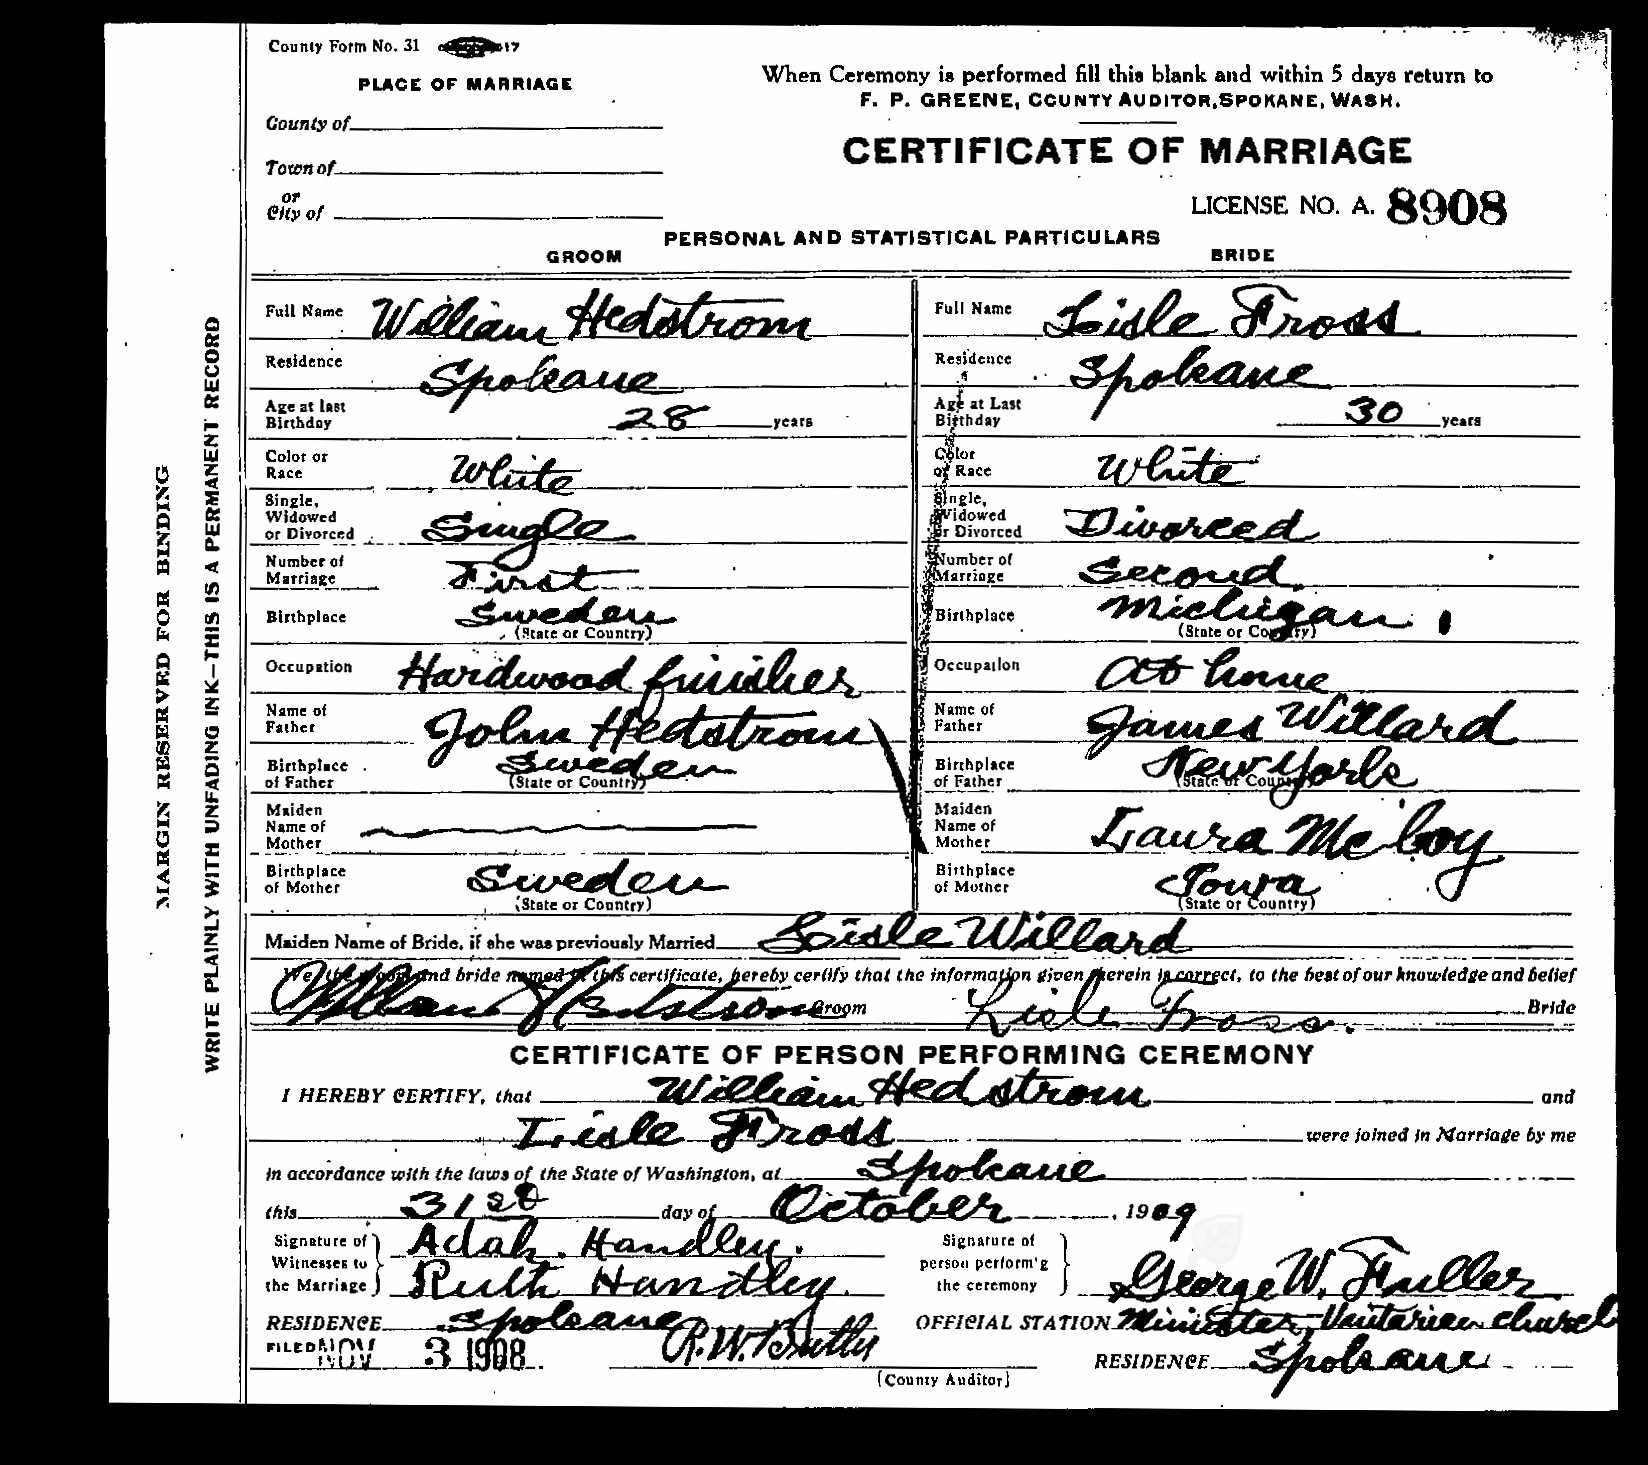 County Form No. 31 17
PLACE OF MARRIAGE
When Ceremony is performed fill this blank and within 5 days return to
F. P. GREENE, COUNTY AUDITOR, SPOKANE, WASH.
County of
Town of
or
City of
CERTIFICATE OF MARRIAGE
LICENSE NO. A. 8908
PERSONAL AND STATISTICAL PARTICULARS
GROOM BRIDE
Full Name William Hedstrom Full Name Lisle Fross
Residence Spokane Residence Spokane
Age at last Birthday 28 years Age at Last Birthday 30 years
Color or Race White Color or Race White
Single, Widowed or Divorced Single Single, Widowed or Divorced Divorced
Number of Marriage First Number of Marriage Second
Birthplace Sweden Birthplace Michigan
(State or Country) (State or Country)
Occupation Hardwood finisher Occupation At home
Name of Father John Hedstrom Name of Father James Willard
Birthplace of Father Sweden Birthplace of Father New York
(State or Country) (State or Country)
Maiden Name of Mother Maiden Name of Mother Laura McCoy
Birthplace of Mother Sweden Birthplace of Mother Iowa
(State or Country) (State or Country)
Maiden Name of Bride, if she was previously Married Lisle Willard
We, the groom and bride named in this certificate, hereby certify that the information given herein is correct, to the best of our knowledge and belief
William Hedstrom Groom Lisle Fross. Bride
CERTIFICATE OF PERSON PERFORMING CEREMONY
I HEREBY CERTIFY, that William Hedstrom and
Lisle Fross were joined in Marriage by me
in accordance with the laws of the State of Washington, at Spokane
this 31st day of October, 1909
Signature of Witnesses to the Marriage Adah. Handley. Ruth Handley. Signature of person perform'g the ceremony George W. Fuller
RESIDENCE Spokane OFFICIAL STATION Minister, Unitarian church
FILED NOV 3 1908 R.W. Butler RESIDENCE Spokane
(County Auditor)
MARGIN RESERVED FOR BINDING
WRITE PLAINLY WITH UNFADING INK—THIS IS A PERMANENT RECORD